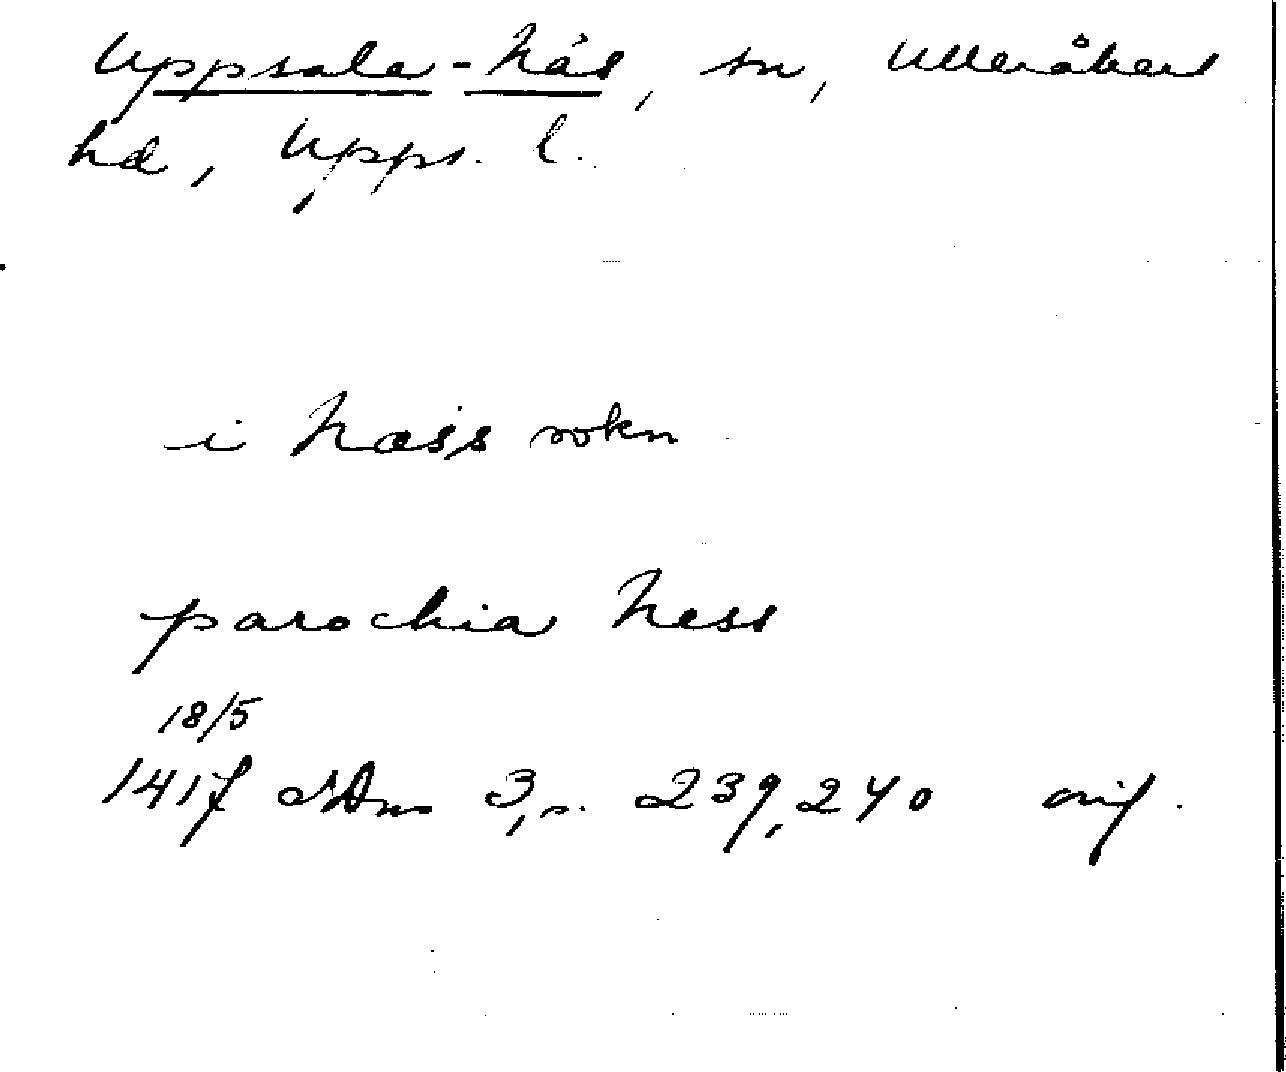 Uppsala-Näs, sn, Ulleråkers
hd, Upps. l.
i Næss sokn
parochia Ness
18/5
1417 SDns 3, s. 239, 240 orig.